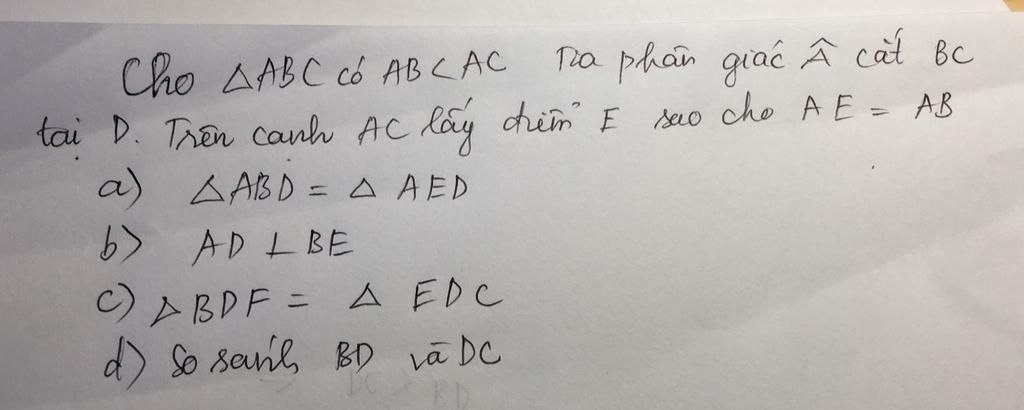 Cho △ABC có AB < AC Tia phân giác Â cắt BC
tại D. Trên cạnh AC lấy điểm E sao cho AE = AB
a) △ABD = △ AED
b) AD ⊥ BE
c) △BDF = △ EDC
d) So sánh BD và DC
DC > BD